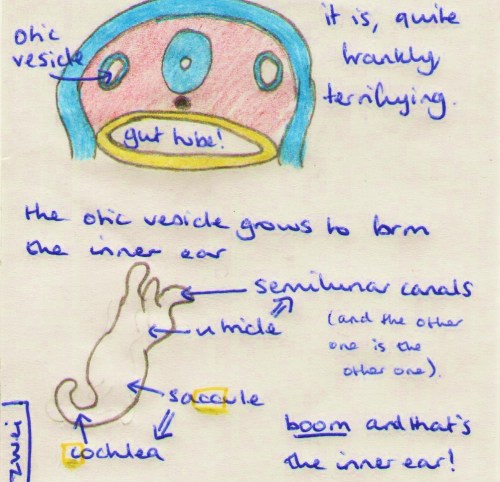 otic
vesicle
gut tube!
it is, quite
frankly
terrifying.
the otic vesicle grows to form
the inner ear
semilunar canals
utricle
(and the other
one is the
other one).
saccule
cochlea
boom and that's
the inner ear!